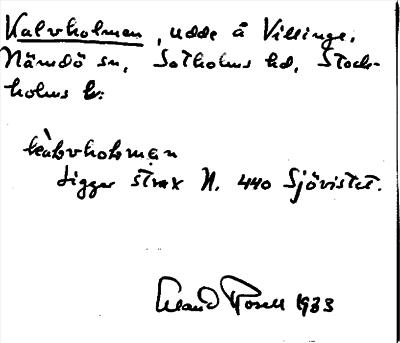 Kalvholmen, udde å Villinge,
Nämdö sn, Sotholms hd, Stock-
holms l.
kàlvholmen
Ligger strax N. 440 Sjövistet.
Rosell 1933